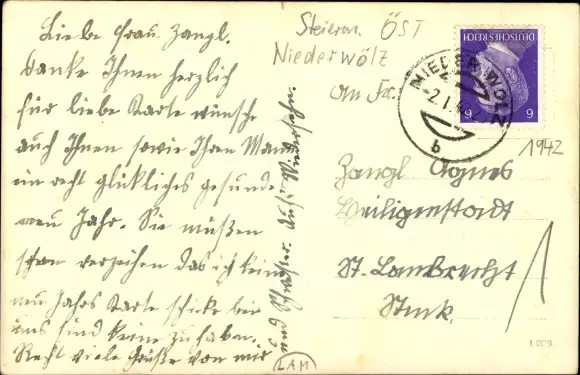 Liebe Frau Zangl.
Danke Ihnen herzlich
für liebe Karte wünsche
auch Ihnen sowie Ihren Mann
ein recht glückliches gesundes
neues Jahr. Sie müßen
schon verzeihen das ich keine
neu Jahrs Karte schicke bei
uns sind keine zu haben.
Recht viele Grüße von mir
und Schwester. Auf Wiedersehn.
LAM
Steierm. ÖST
Niederwölz
An Fr.
DEUTSCHES REICH
6 6
NIEDERWÖLZ
-2.1.42
b
1942
Zangl Agnes
Heiligenstadt
St. Lambrecht
Stmk.